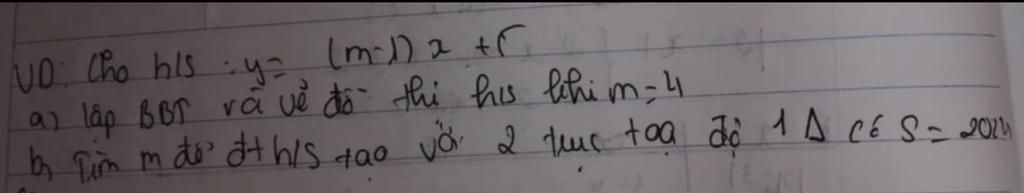 VD: Cho h/s : y = (m-1)x + 5
a) lập BBT và vẽ đồ thị h/s khi m = 4
b) Tìm m để đt h/s tạo với 2 trục toạ độ 1 Δ có S = 2024